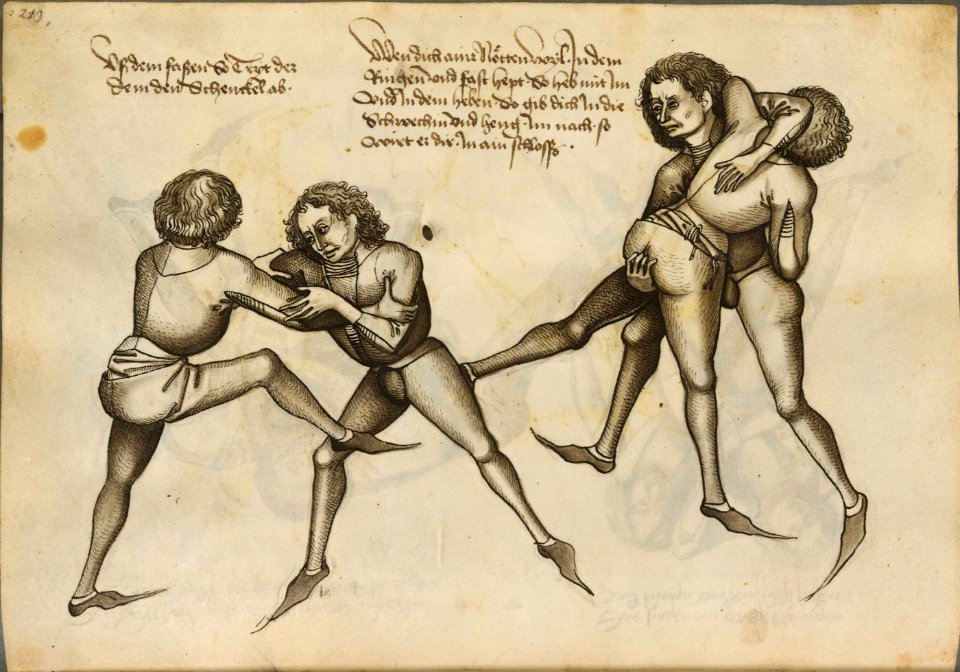 219.
Uſ dem faſſen So Tryt der
dem den Schenckel ab.
Wen dich ainr Nötten wyl In dem
Ringen und faſt hept So heb mit Im
Und In dem heben So gib dich In die
Schwechin und heng Im nach so
Wirt er dir In ain ſchloſß.